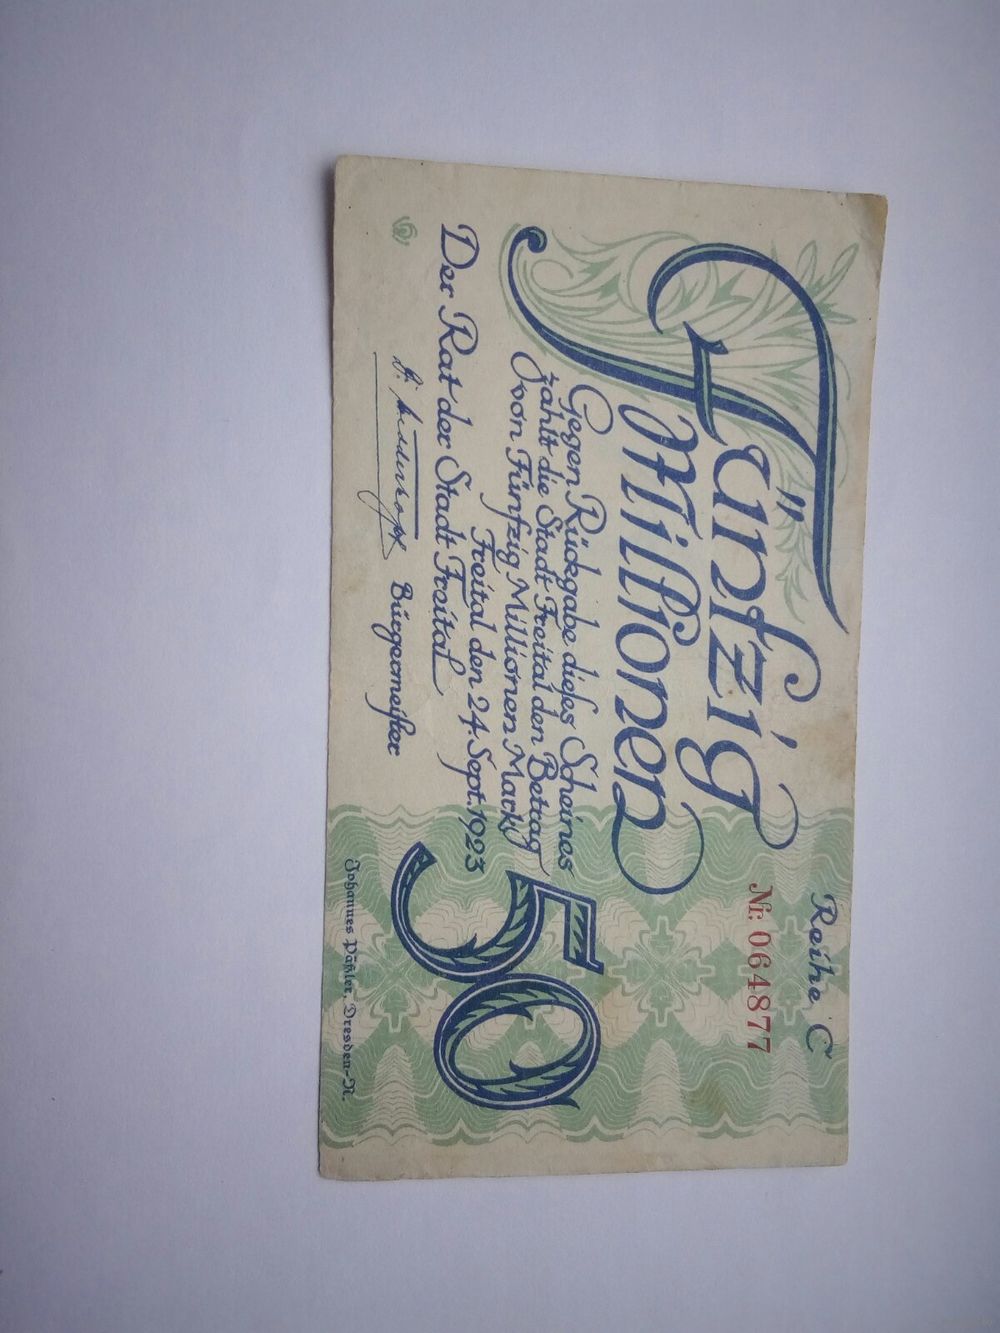 Reihe C
Nr. 064877
Fünfzig
Millionen
Gegen Rückgabe dieſes Scheines
zahlt die Stadt Freital den Betrag
von Fünfzig Millionen Mark
Freital den 24. Sept. 1923
Der Rat der Stadt Freital
Bürgermeiſter
50
Johannes Päßler, Dresden-N.